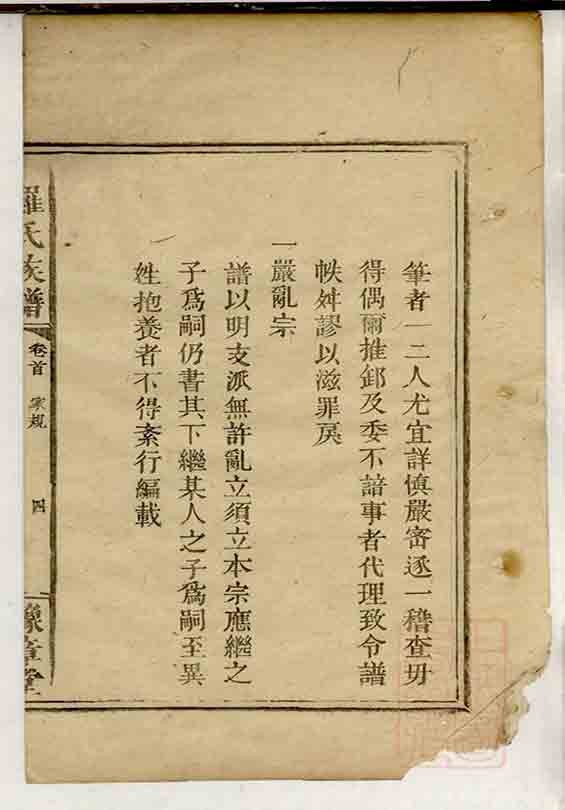 筆者一二人尤宜詳慎嚴密逐一稽查毋
得偶爾推卸及委不諳事者代理致令譜
帙舛謬以滋罪戾
一嚴亂宗
譜以明支派無許亂立須立本宗應繼之
子爲嗣仍書其下繼某人之子爲嗣至異
姓抱養者不得紊行編載
羅氏族譜
卷首
家規
四
豫章堂